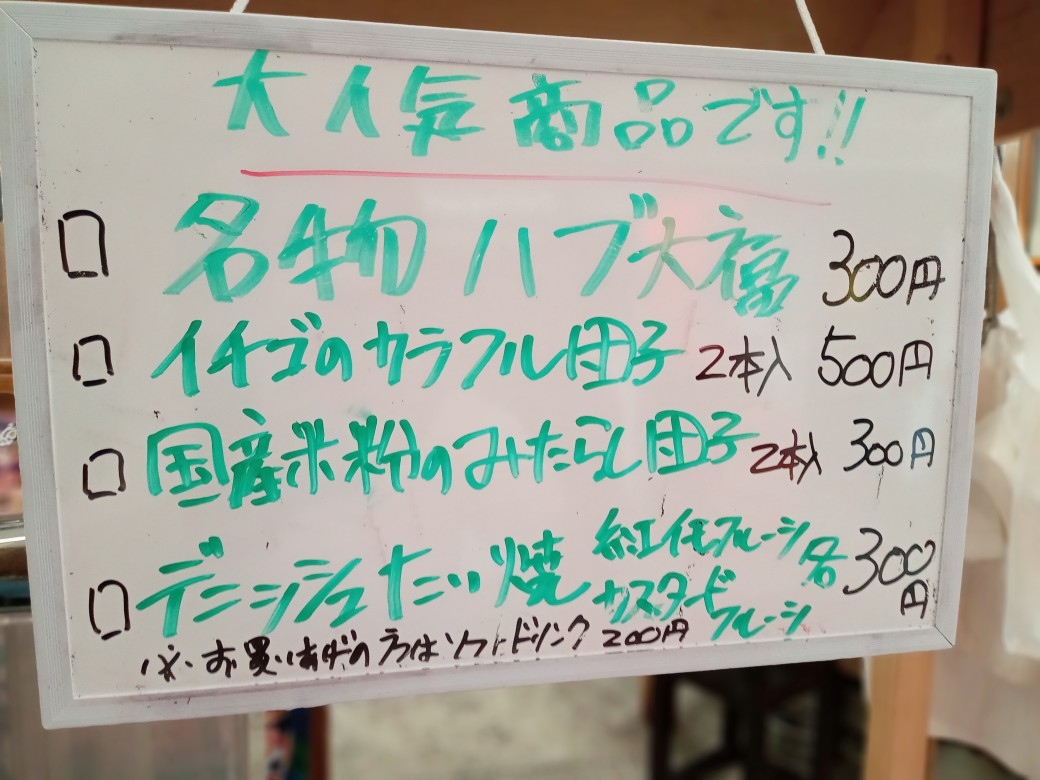 大人気商品です!!
□ 名物ハブ大福 300円
□ イチゴのカラフル団子 2本入 500円
□ 国産米粉のみたらし団子 2本入 300円
□ デニッシュたい焼 紅イモフルーシ カスタードフルーシ 各300円
※お買いあげの方はソフトドリンク 200円